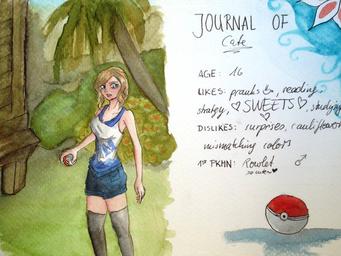 JOURNAL OF
Cate
AGE: 16
LIKES: pranks, reading,
strategy, ♡SWEETS♡, studying
DISLIKES: surprises, cauliflower
mismatching colors
1st PKMN: Rowlet ♂
so cute ♥